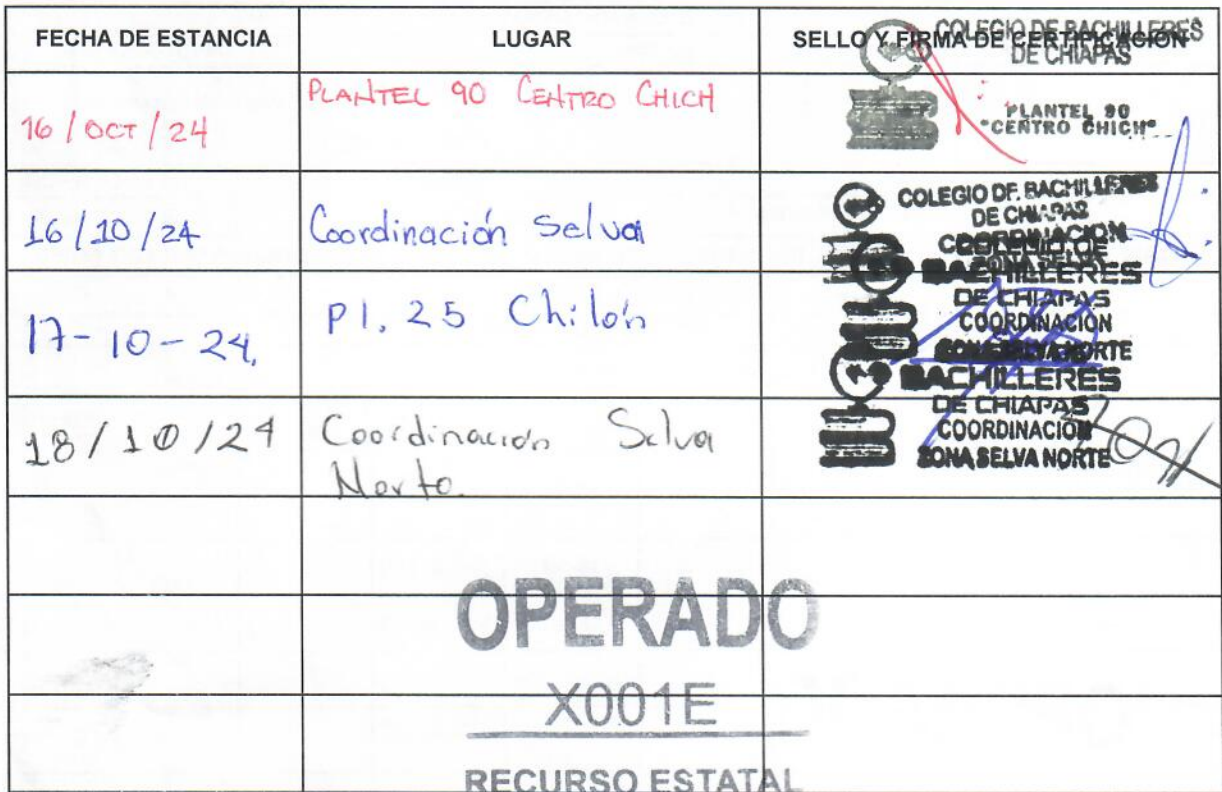 FECHA DE ESTANCIA
LUGAR
SELLO Y FIRMA DE CERTIFICACIÓN
COLEGIO DE BACHILLERES
DE CHIAPAS
PLANTEL 90
"CENTRO CHICH"
16 / OCT / 24
PLANTEL 90 CENTRO CHICH
16/10/24
Coordinación Selva
COLEGIO DE BACHILLERES
DE CHIAPAS
COORDINACION
ZONA SELVA
17-10-24.
Pl. 25 Chilón
COLEGIO DE
BACHILLERES
DE CHIAPAS
COORDINACIÓN
ZONA SELVA NORTE
18/10/24
Coordinación Selva
Norte.
BACHILLERES
DE CHIAPAS
COORDINACIÓN
ZONA SELVA NORTE
OPERADO
X001E
RECURSO ESTATAL